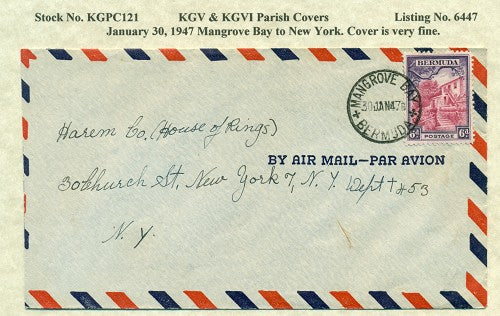 Stock No. KGPC121 KGV & KGVI Parish Covers Listing No. 6447
January 30, 1947 Mangrove Bay to New York. Cover is very fine.
BERMUDA
MANGROVE BAY
30 JAN 47
BERMUDA
6d POSTAGE 6d
Harem Co. (House of Rings)
BY AIR MAIL—PAR AVION
30 Church St, New York 7, N.Y. Dept #53
N.Y.